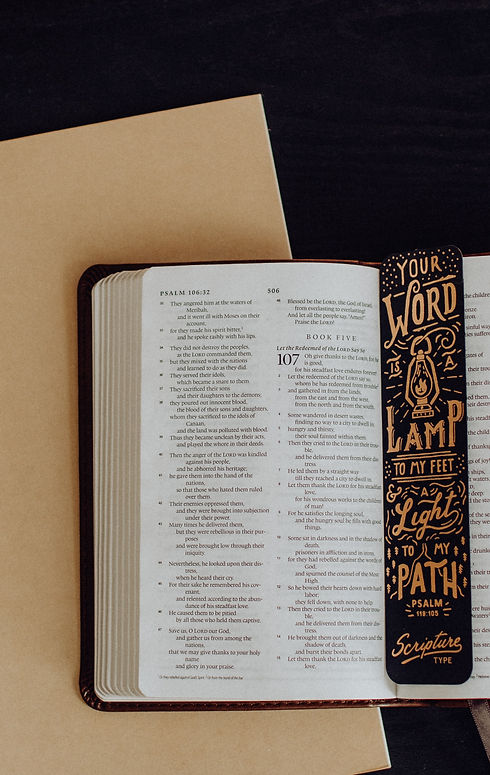 PSALM 106:32
506
32 They angered him at the waters of
Meribah,
and it went ill with Moses on their
account,
33 for they made his spirit bitter,
and he spoke rashly with his lips.
34 They did not destroy the peoples,
as the LORD commanded them,
35 but they mixed with the nations
and learned to do as they did.
36 They served their idols,
which became a snare to them.
37 They sacrificed their sons
and their daughters to the demons;
38 they poured out innocent blood,
the blood of their sons and daughters,
whom they sacrificed to the idols of
Canaan,
and the land was polluted with blood.
39 Thus they became unclean by their acts,
and played the whore in their deeds.
40 Then the anger of the LORD was kindled
against his people,
and he abhorred his heritage;
41 he gave them into the hand of the
nations,
so that those who hated them ruled
over them.
42 Their enemies oppressed them,
and they were brought into subjection
under their power.
43 Many times he delivered them,
but they were rebellious in their pur-
poses
and were brought low through their
iniquity.
44 Nevertheless, he looked upon their dis-
tress,
when he heard their cry.
45 For their sake he remembered his cov-
enant,
and relented according to the abun-
dance of his steadfast love.
46 He caused them to be pitied
by all those who held them captive.
47 Save us, O LORD our God,
and gather us from among the
nations,
that we may give thanks to your holy
name
and glory in your praise.
48 Blessed be the LORD, the God of Israel,
from everlasting to everlasting!
And let all the people say, "Amen!"
Praise the LORD!
BOOK FIVE
Let the Redeemed of the LORD Say So
107 Oh give thanks to the LORD, for he
is good,
for his steadfast love endures forever!
2 Let the redeemed of the LORD say so,
whom he has redeemed from trouble
3 and gathered in from the lands,
from the east and from the west,
from the north and from the south.
4 Some wandered in desert wastes,
finding no way to a city to dwell in;
5 hungry and thirsty,
their soul fainted within them.
6 Then they cried to the LORD in their trou-
ble,
and he delivered them from their dis-
tress.
7 He led them by a straight way
till they reached a city to dwell in.
8 Let them thank the LORD for his steadfast
love,
for his wondrous works to the children
of man!
9 For he satisfies the longing soul,
and the hungry soul he fills with good
things.
10 Some sat in darkness and in the shadow of
death,
prisoners in affliction and in irons,
11 for they had rebelled against the words of
God,
and spurned the counsel of the Most
High.
12 So he bowed their hearts down with hard
labor;
they fell down, with none to help.
13 Then they cried to the LORD in their trou-
ble,
and he delivered them from their dis-
tress.
14 He brought them out of darkness and the
shadow of death,
and burst their bonds apart.
15 Let them thank the LORD for his steadfast
love,
YOUR
WORD
IS A
LAMP
TO MY FEET
& A
Light
TO MY
PATH
PSALM
119:105
Scripture
TYPE